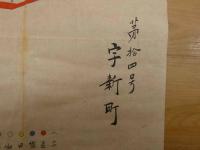 第拾四号
字新町